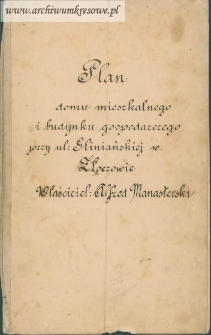 www.archiwumkresowe.pl
Plan
domu mieszkalnego
i budynku gospodarczego
przy ul: Gliniańskiej w
Złoczowie
Właściciel: Alfred Manasterski